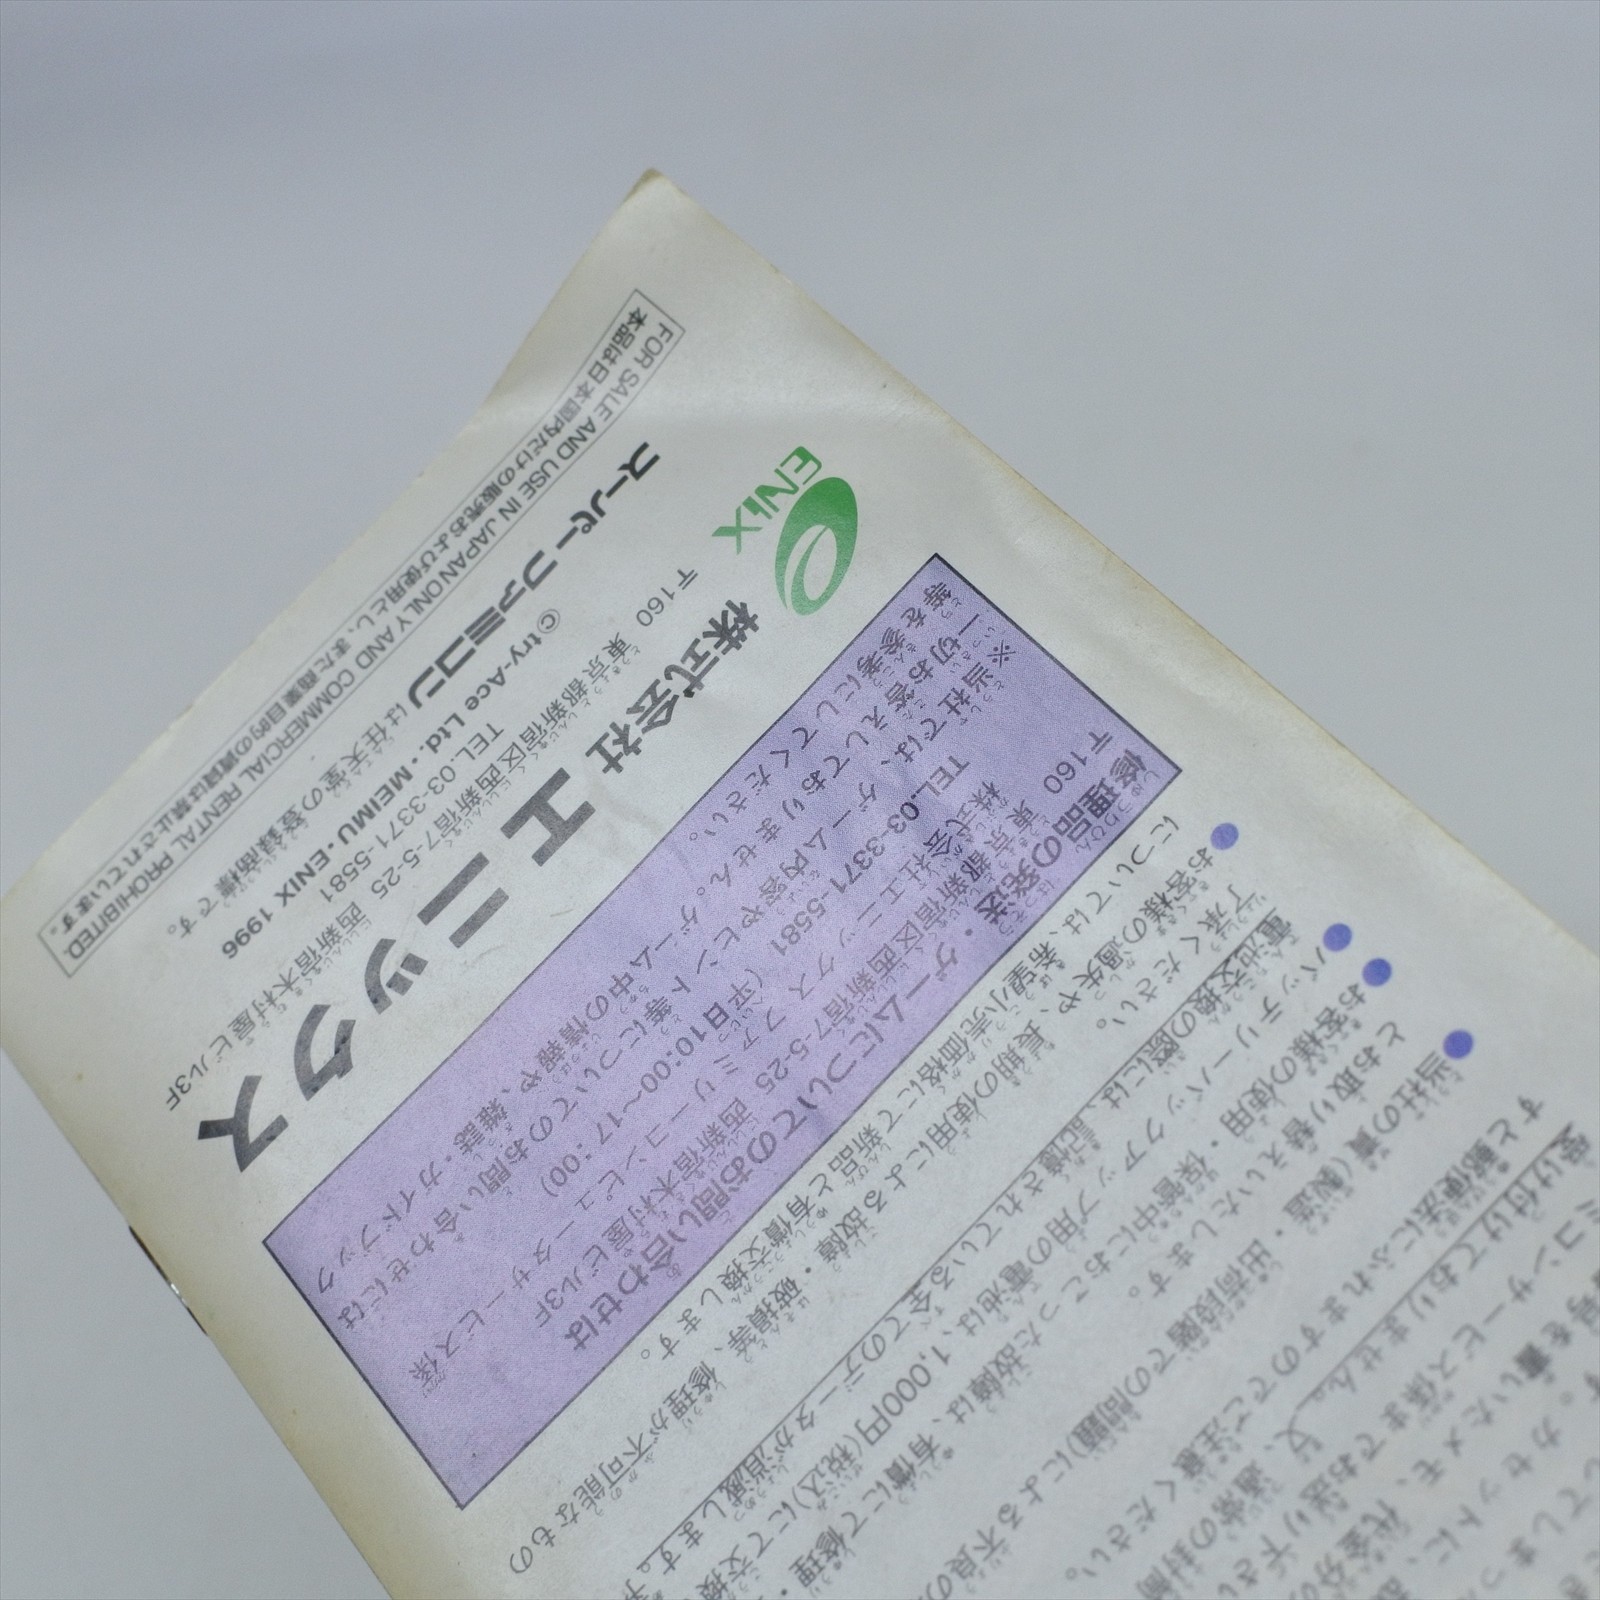 すと郵便法にふれますのでご注意ください。
●当社の責(製造・出荷段階での問題)による不良の
とお取り替えいたします。
●お客様の使用・保管中におこった故障は、有償にて修理・
●バッテリーバックアップ用の電池は、1,000円(税込)にて交換
電池交換の際には、記憶されている全てのデータが消滅します。予
了承ください。
●お客様の過失や、長期の使用による故障・破損等、修理が不可能なもの
については、希望小売価格にて新品と有償交換します。
修理品の発送・ゲームについてのお問い合わせは
〒160 東京都新宿区西新宿7-5-25 西新宿木村屋ビル3F
株式会社エニックス ファミリーコンピュータサービス係
TEL.03-3371-5581 (平日10:00〜17:00)
※当社では、ゲーム内容やヒント等についてのお問い合わせには
一切お答えしておりません。ゲーム中の情報や、雑誌・ガイドブック
等を参考にしてください。
ENIX
株式会社 エニックス
〒160 東京都新宿区西新宿7-5-25 西新宿木村屋ビル3F
TEL.03-3371-5581
© try-Ace Ltd.・MEIMU・ENIX 1996
スーパーファミコンは任天堂の登録商標です。
FOR SALE AND USE IN JAPAN ONLY AND COMMERCIAL RENTAL PROHIBITED.
本品は日本国内だけの販売および使用とし、また商業目的の賃貸は禁止されています。